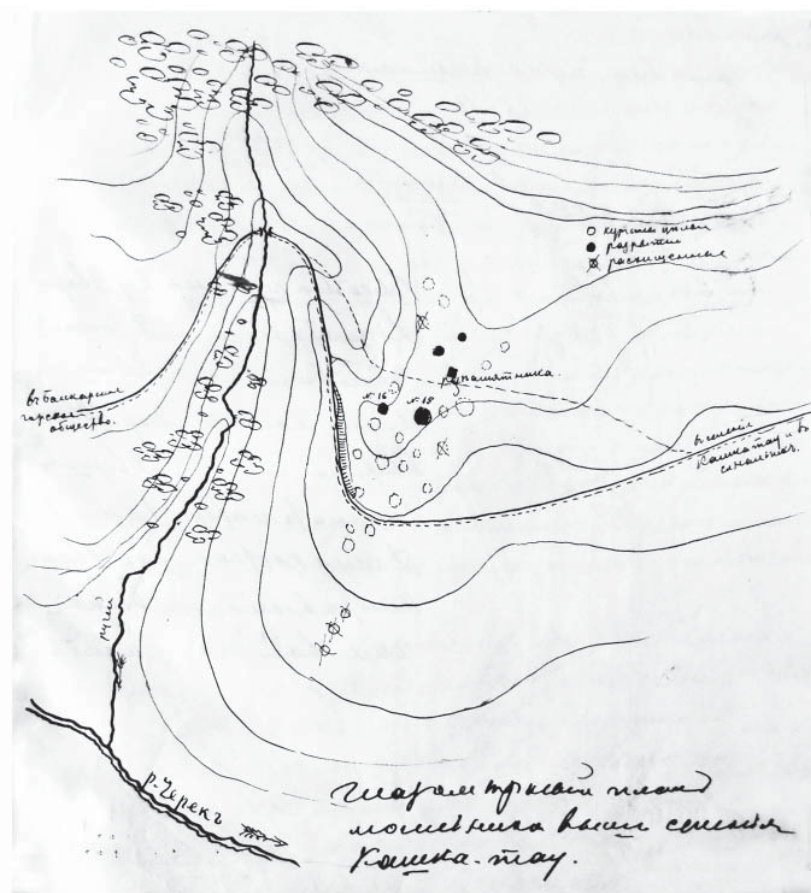 курганы целые
разрытые
расхищенные
въ Балкарское
горское
общество.
памятника.
№ 16
№ 18
въ селенiе
Кашкатау и въ
ручей
р. Черекъ
Глазомѣрный планъ
могильника выше селенiя
Кашка-тау.